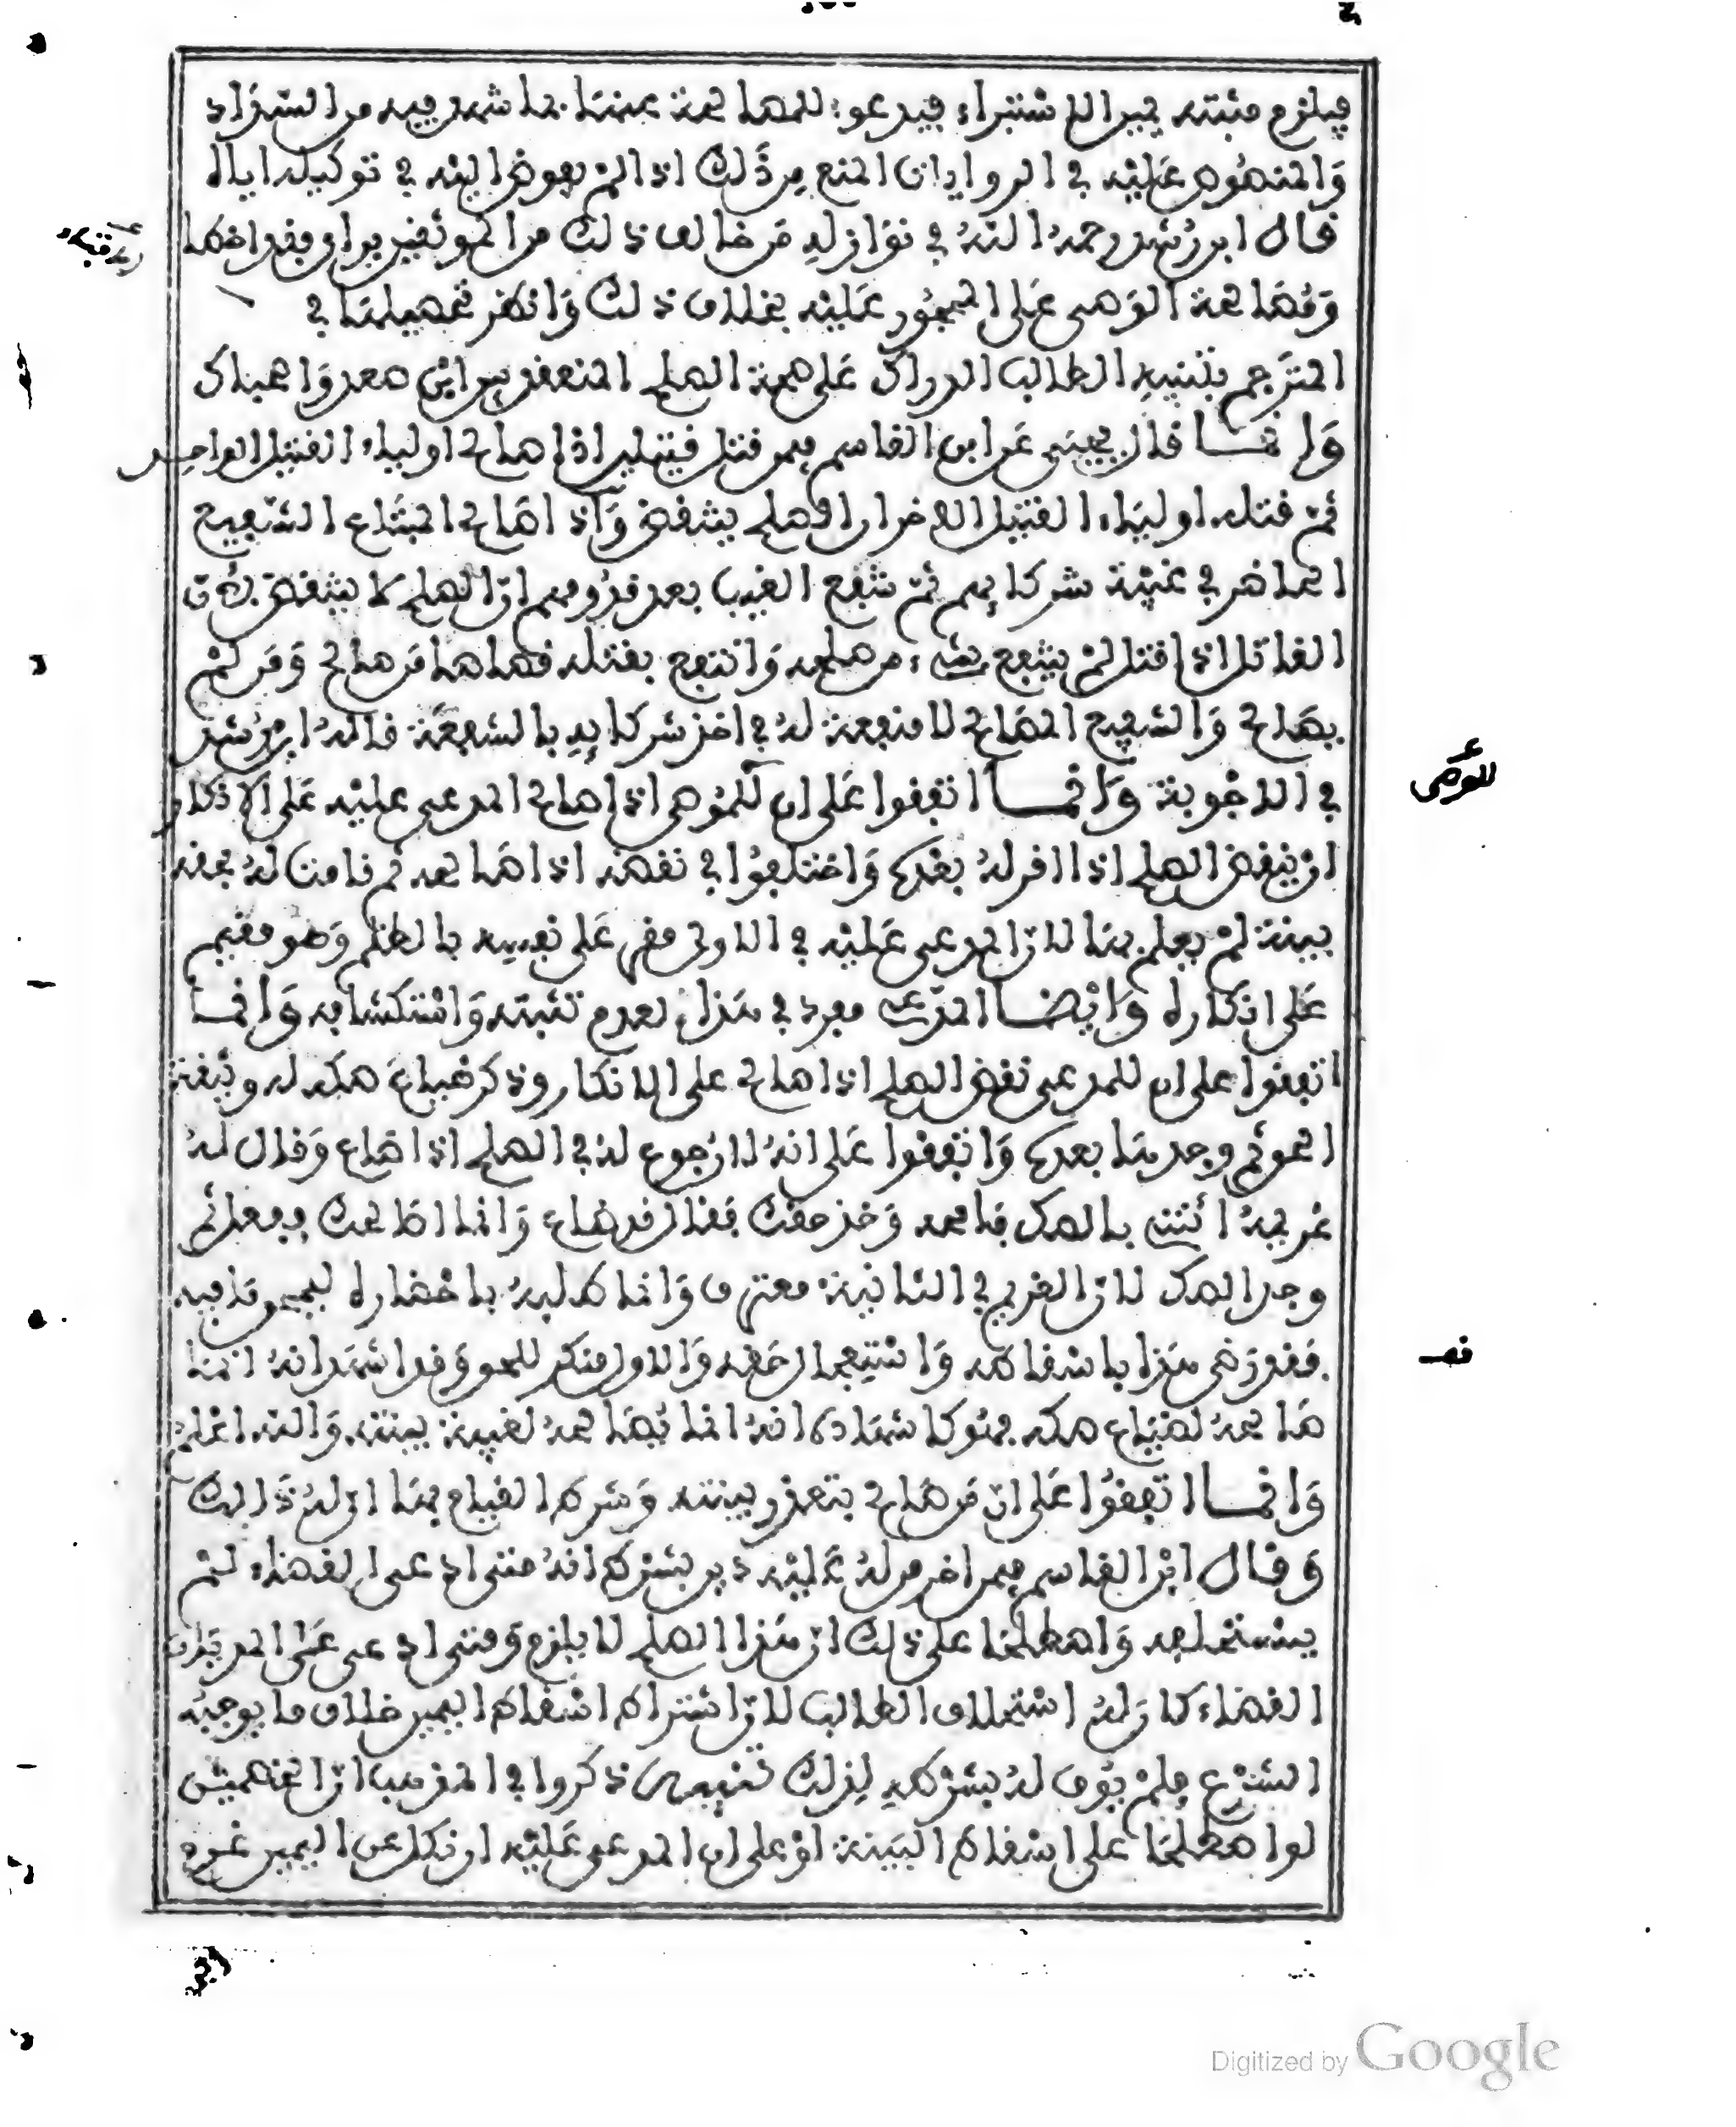 فيلزم مثبته يمين الاستبراء فيدعو للمصالحة عنها بما شهد فيه من السداد
والمنصوص عليه في الروايات المنع من ذلك اذا لم يفوض اليه في توكيله اياه
قال ابن رشد رحمه الله في نوازله من خالف ذلك من الموثقين براي فقد اخطا
ومصالحة الوصي على المحجور عليه بخلاف ذلك وانظر تحصيلها في
المترجم بتنبيه الطالب الدراك على صحة الصلح المنعقد بين ابن صعد والحباك
وانما قال يحيى عن ابن القاسم فيمن قتل قتيلين اذا صالح اولياء القتيل الواحد
ثم قتله اولياء القتيل الاخر ان الصلح ينتقض واذا صالح المبتاع الشفيع
الحاضر في غيبة شركايه ثم شفع الغيب بعد قدومهم ان الصلح لا ينتقض لان
القاتل اذا قتل لم ينتفع بشيء من صلحه وانتفع بقتله قصاصا من صالح ومن لم
يصالح والشفيع المصالح لا منفعة له في اخذ شركايه بالشفعة قاله ابن رشد
في الاجوبة وانما اتفقوا على ان للموصى اذا صالح المدعى عليه على الانكار
ان ينقض الصلح اذا اقر له بعده واختلفوا في نقضه اذا صالحه ثم قامت له بحقه
بينة لم يعلم بها لان المدعى عليه في الاولى مقر على نفسه بالظلم وهو مقيم
على انكاره وايضا المدعى مفرط في هذا لعدم تثبته واستكشافه وانما
اتفقوا على ان للمدعى نقض الصلح اذا صالح على الانكار وذكر ضياع صكه او وثيقة
الحق ثم وجدها بعده واتفقوا على انه لا رجوع له في الصلح اذا ضاع وقال له
غريمه ائت بالصك فامحه وخذ حقك فقال قد ضاع وانا اصالحك ففعل ثم
وجد الصك لان الغريم في الثانية معترف وانما طلبه باحضاره ليمحو ما فيه
فقد رضي هذا باسقاطه واستعجال حقه والاول منكر للحق وقد اشهد انه انما
صالحه لضياع صكه فهو كاشهاده انه انما يصالحه لغيبة بينته والله اعلم
وانما اتفقوا على ان من صالح بتعذر بينته وشرط القيام بها ان له ذلك
وقال ابن القاسم فيمن اخر من له عليه دين بشرط انه متى ادعى القضاء لم
يستحلفه واصطلحا على ذلك ان هذا الصلح لا يلزم ومتى ادعى على المديان
القضاء كان له استحلاف الطالب لان اشتراط اسقاط اليمين خلاف ما يوجبه
الشرع فلم يوف له بشرطه لذلك تنبيه ذكروا في المذهب ان الخصمين
لو اصطلحا على اسقاط البينة او على ان المدعى عليه ان نكل عن اليمين غرم
للوصي
قف